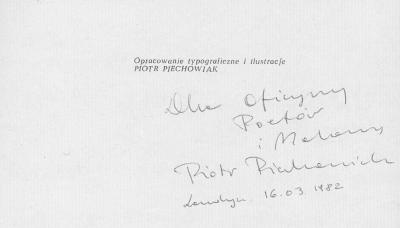 Opracowanie typograficzne i ilustracje
PIOTR PIECHOWIAK
Dla Oficyny
Poetów
i Malarzy
Piotr Piechowiak
Londyn 16.03.1982